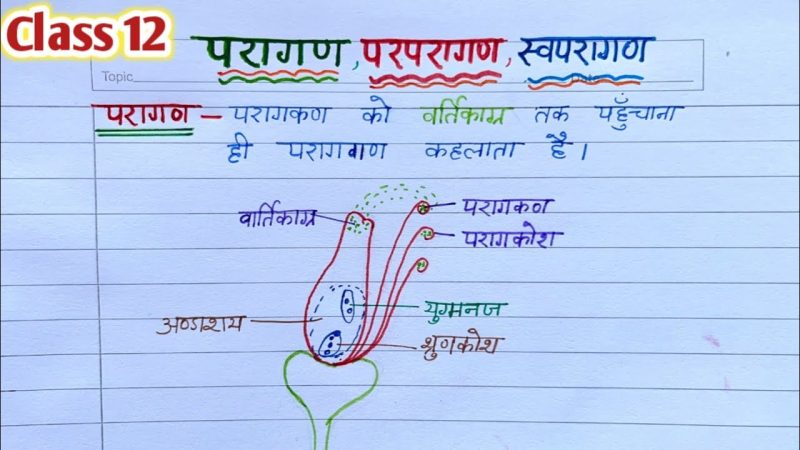 Class 12
परागण, परपरागण, स्वपरागण
Topic
परागण — परागकण को वर्तिकाग्र तक पहुँचाना
ही परागगण कहलाता है।
वार्तिकाग्र
परागकण
परागकोश
अण्डाशय
युग्मनज
भ्रुणकोश